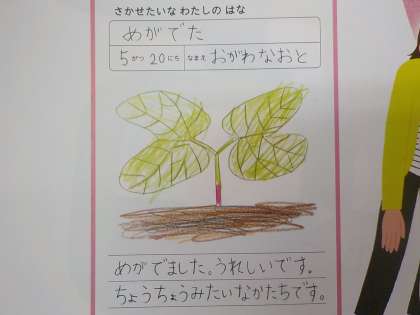 さかせたいな わたしの はな
めがでた
5がつ 20にち なまえ おがわなおと
めがでました。うれしいです。
ちょうちょうみたいなかたちです。